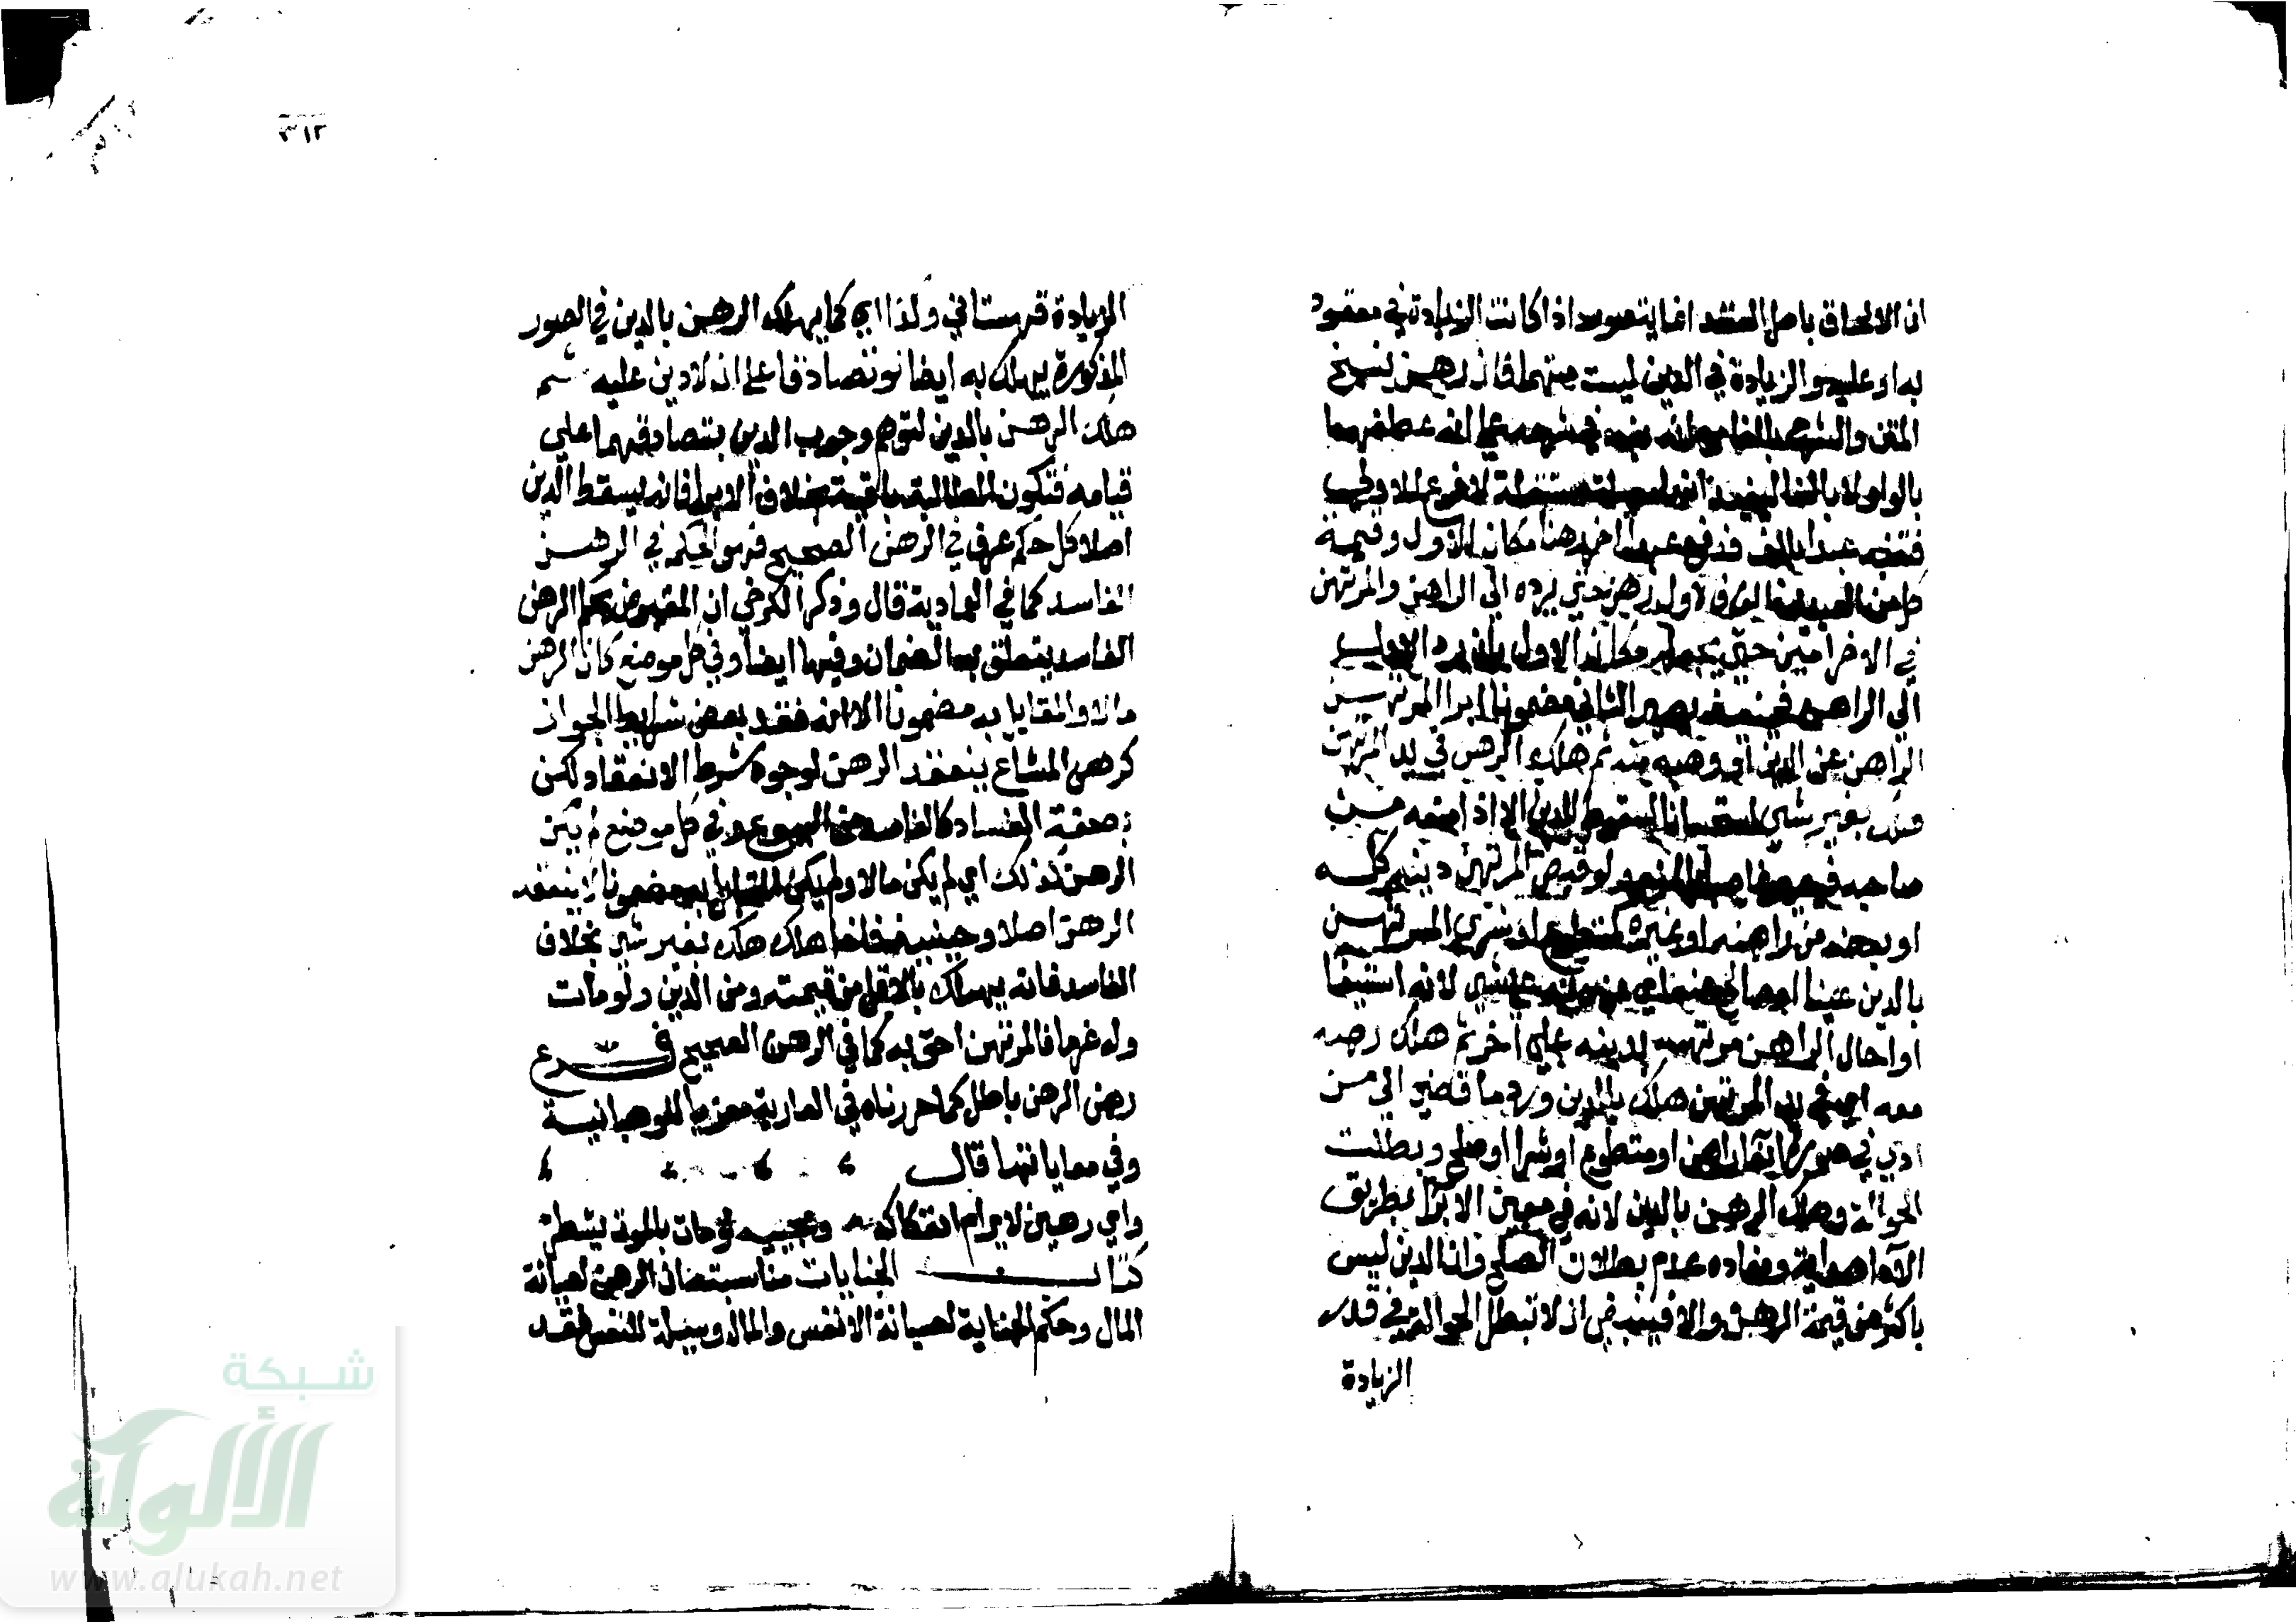 ان الالحاق باصل العقد انما يتصور اذا كانت الزيادة في معقود
به او عليه والزيادة في الدين ليست منهما فان رهن نسخ
المتن والشرح بالفا مع انه نبه في شرحه على انه عطفهما
بالواو لا بالفا ليفيد انها مسئلة مستقلة لا فرع للاولى
عبدا بالف فدفع عبدا اخر رهنا مكان الاول وقيمة
كل من العبدين الف فالاول رهن حتى يرده الى الراهن والمرتهن
في الاخر امين حتى يجعله مكان الاول بان يرد الاول
الى الراهن فحينئذ يصير الثاني مضمونا ابرا المرتهن
الراهن عن الدين او وهبه منه ثم هلك الرهن في يد المرتهن
هلك بغير شي استحسانا لسقوط الدين الا اذا منعه من
صاحبه فيصير غاصبا بالمنع ولو قبض المرتهن دينه كله
او بعضه من راهنه او غيره كمتطوع او شرى المرتهن
بالدين عينا او صالح عنه على شي لانه استيفا
او احال الراهن مرتهنه بدينه على اخر ثم هلك رهنه
معه اي في يد المرتهن هلك بالدين ورد ما قبض الى من
ادى في صورة ايفا راهن او متطوع او شرا او صلح وبطلت
الحوالة وهلك الرهن بالدين لانه في معنى الابرا بطريق
الادا هداية ومفاده عدم بطلان الصلح وان الدين ليس
باكثر من قيمة الرهن والا فينبغي ان لا تبطل الحوالة في قدر
الزيادة
٣١٢
الزيادة قهستاني وكذا اي كما يهلك الرهن بالدين في الصور
المذكورة يهلك به ايضا لو تصادقا على ان لا دين عليه ثم
هلك الرهن بالدين لتوهم وجوب الدين بتصادقهما على
قيامه فتكون المطالبة باقية بخلاف الابرا فانه يسقط الدين
اصلا كل حكم عرف في الرهن الصحيح فهو الحكم في الرهن
الفاسد كما في العمادية قال وذكر الكرخي ان المقبوض بحكم الرهن
الفاسد يتعلق به الضمان وفيها ايضا وفي كل موضع كان الرهن
مالا والمقابل به مضمونا الا انه فقد بعض شرايط الجواز
كرهن المشاع ينعقد الرهن لوجود شرط الانعقاد ولكن
بصفة الفساد كالفاسد من البيوع وفي كل موضع لم يكن
الرهن كذلك اي لم يكن مالا ولم يكن المقابل به مضمونا لا ينعقد
الرهن اصلا وحينئذ فاذا هلك هلك بغير شي بخلاف
الفاسد فانه يهلك بالاقل من قيمته ومن الدين ولو مات
وله غرما فالمرتهن احق به كما في الرهن الصحيح فرع
رهن الرهن باطل كما حررناه في العارية معزيا للوهبانية
وفي معاياتها قال
واي رهين لا يرام انفكاكه وعجيبه لو مات بالموت يشطر
كتاب الجنايات مناسبته ان الرهن لصيانة
المال وحكم الجناية لصيانة الانفس والمال وسيلة للنفس فقدم
شبكة
الألوكة
www.alukah.net